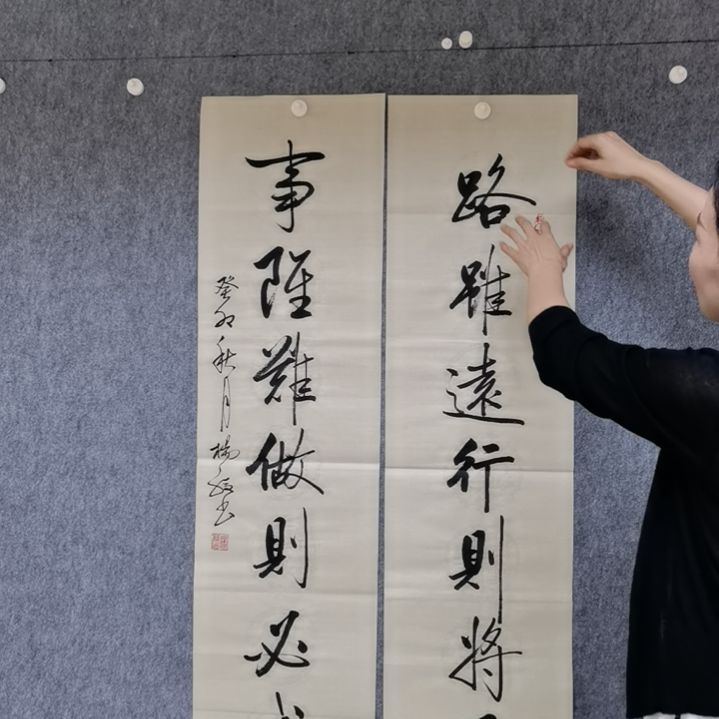 路雖遠行則將
事雖難做則必
癸卯秋月楊